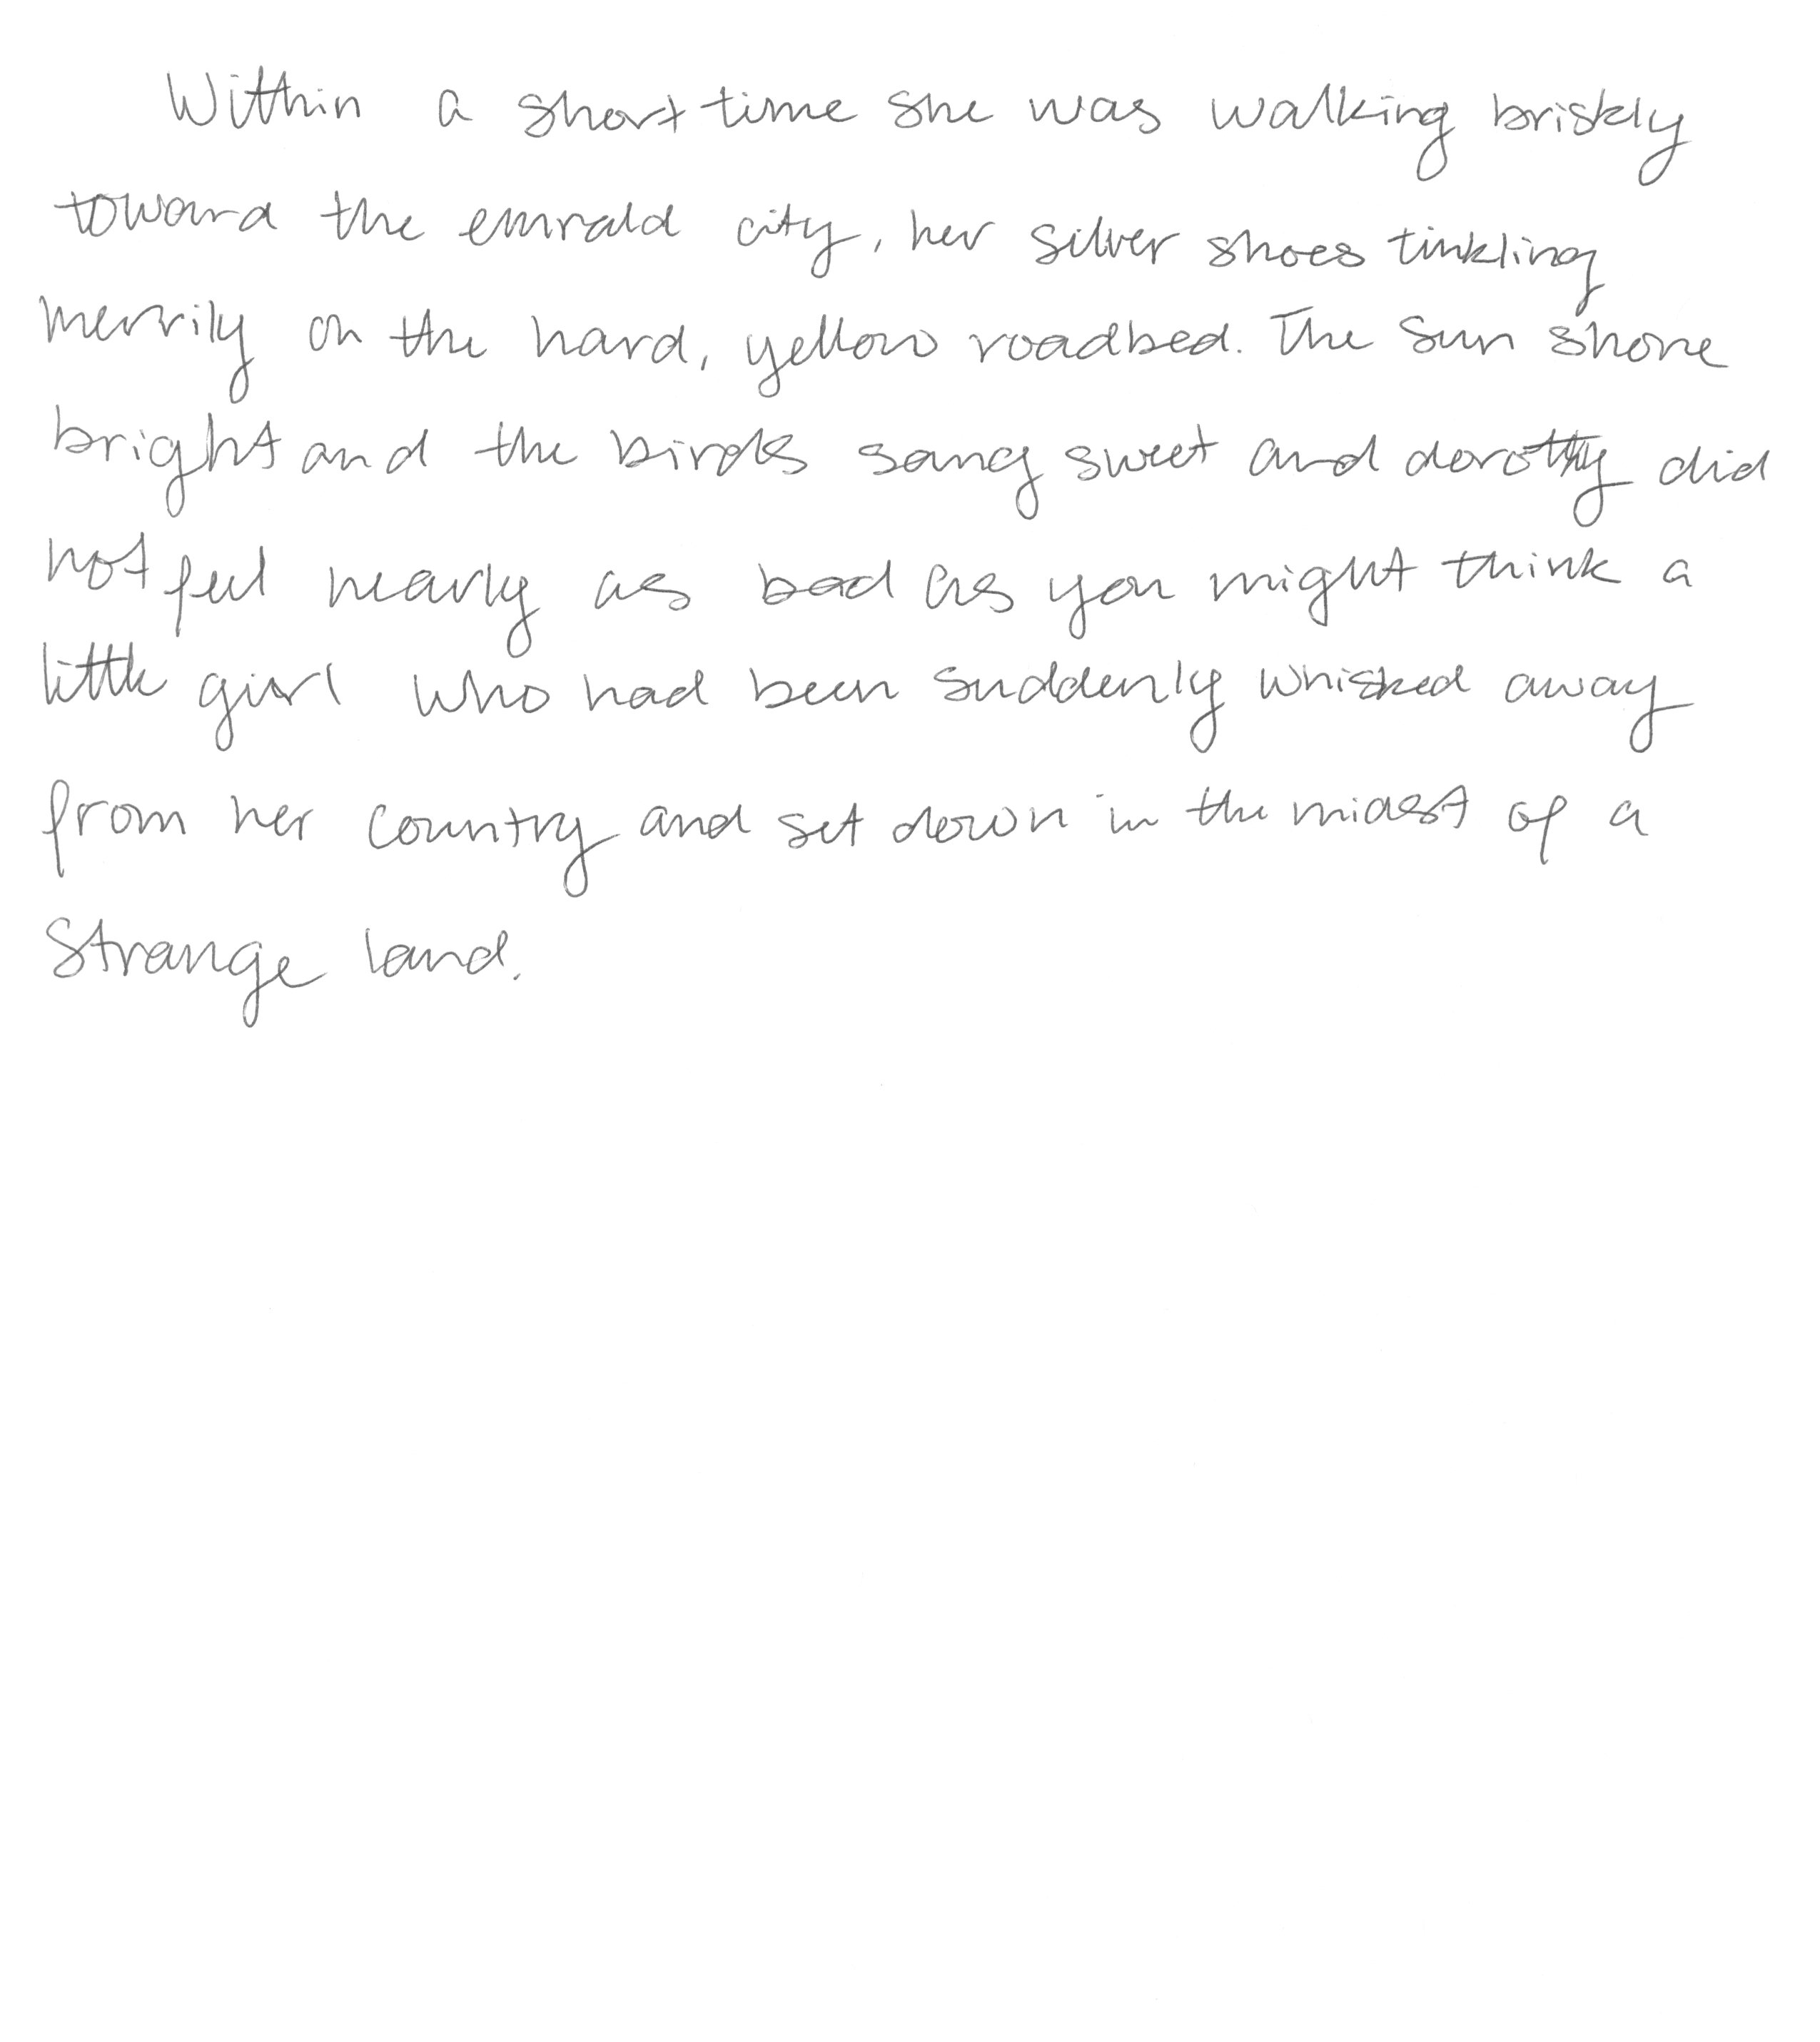 Within a short time she was walking briskly
toward the emrald city, her silver shoes tinkling
merrily on the hard, yellow roadbed. The sun shone
bright and the birds sang sweet and dorothy did
not feel nearly as bad as you might think a
little girl who had been suddenly whisked away
from her country and set down in the midst of a
strange land.